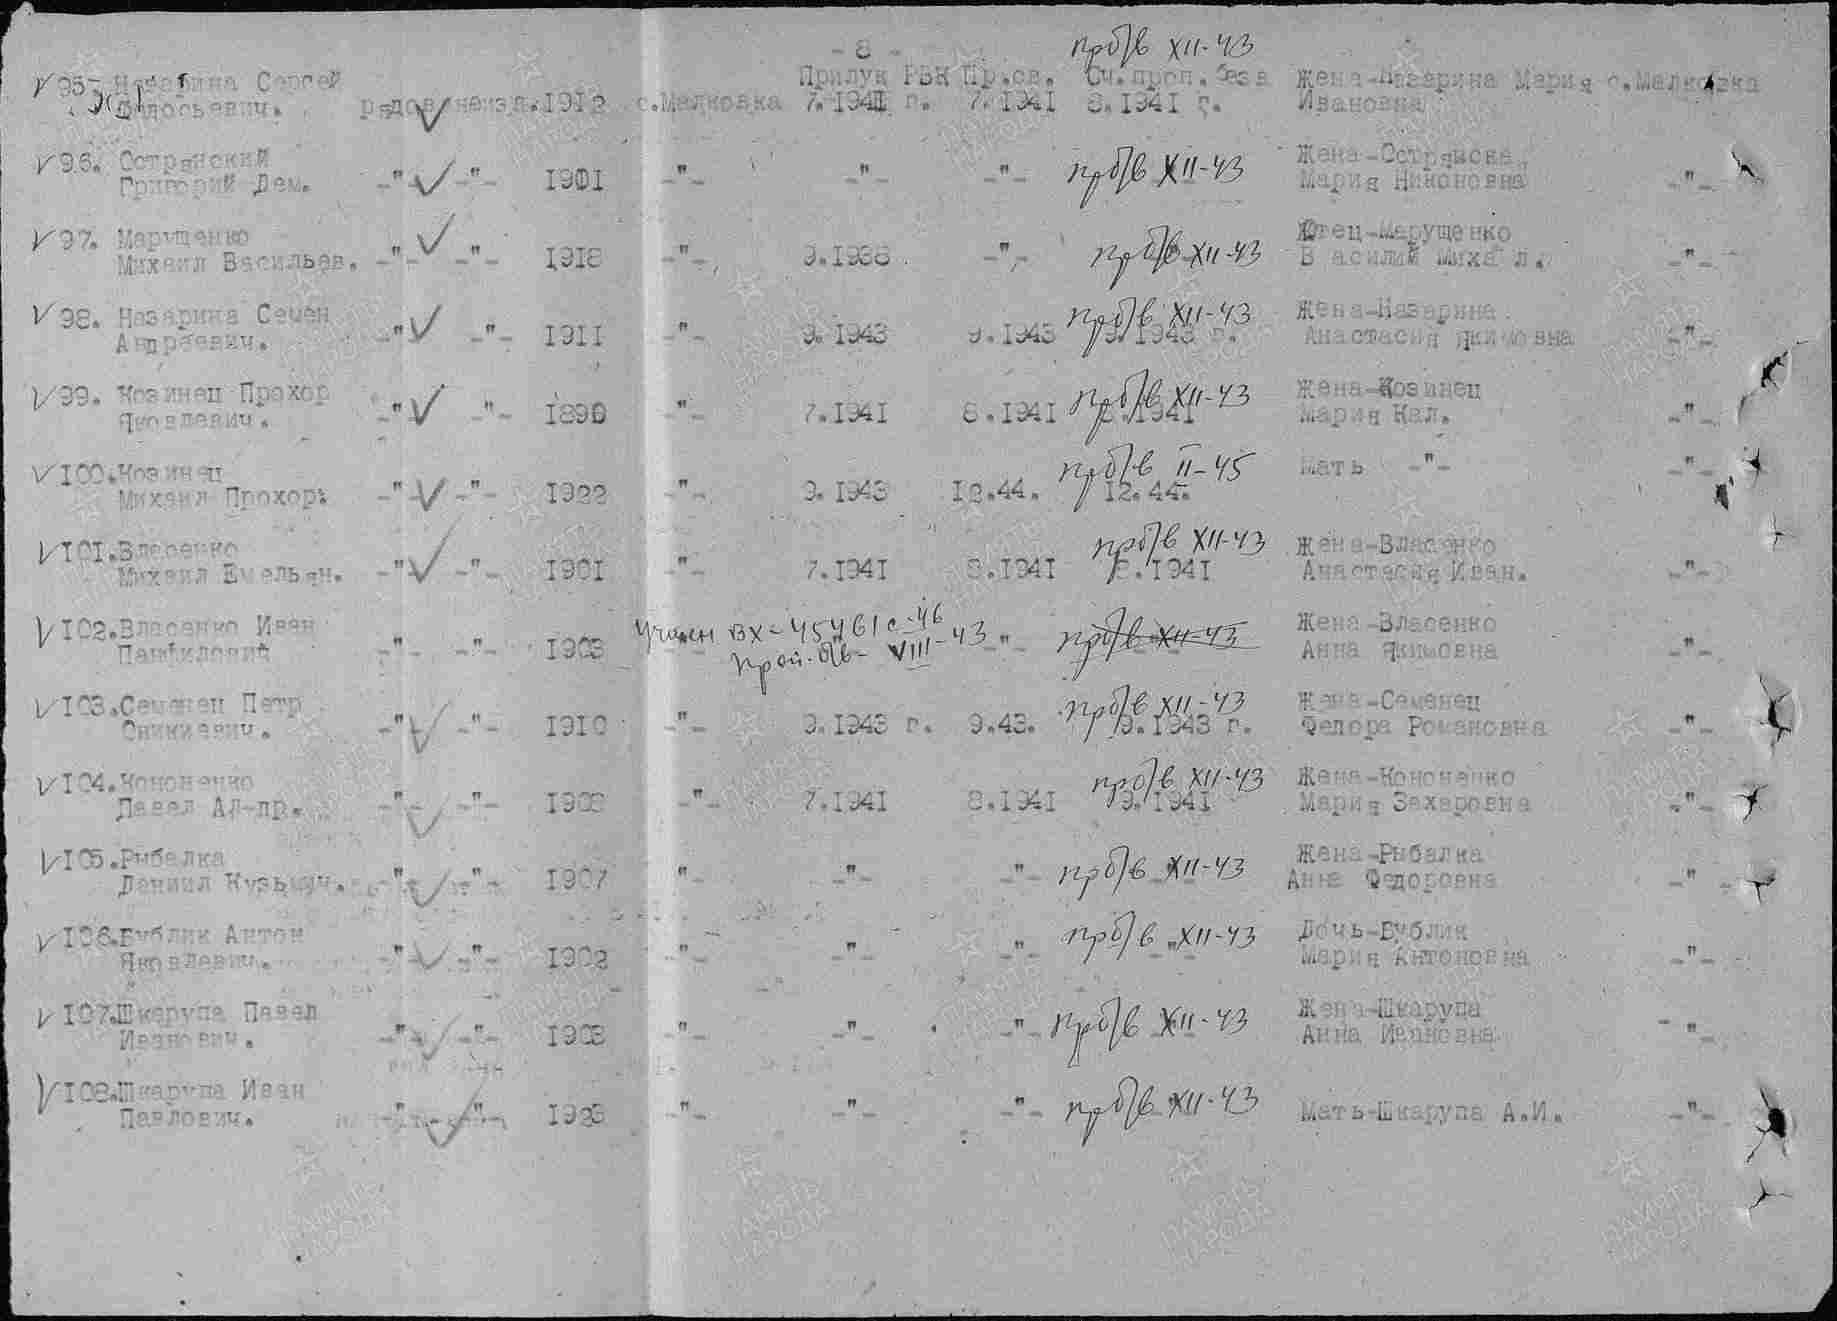 - 8 -
пр б/в XII-43
V 95. Назарина Сергей Прилук РВК Пр.св. Сч.проп.беза Жена-Назарина Мария с.Малковка
рядов. неизв. 1912 с.Малковка 7.1941 г. 7.1941 8.1941 г. Ивановна
V 96. Острянский Жена-Острянска
Григорий Дем. -"- -"- 1901 -"- -"- -"- пр б/в XII-43 Мария Никоновна -"-
V 97. Марущенко Отец-Марущенко
Михаил Васильев. -"- -"- 1918 -"- 9.1938 -"- пр б/в XII-43 Василий Миха л. -"-
V 98. Назарина Семен пр б/в XII-43 Жена-Назарина
Андреевич. -"- -"- 1911 -"- 9.1943 9.1943 9.1943 г. Анастасия Якимовна -"-
V 99. Козинец Прохор пр б/в XII-43 Жена-Козинец
Яковлевич. -"- -"- 1890 -"- 7.1941 8.1941 8.1941 Мария Кал. -"-
V 100. Козинец пр б/в II-45 Мать -"- -"-
Михаил Прохор. -"- -"- 1922 -"- 9.1943 12.44. 12.44.
V 101. Власенко пр б/в XII-43 Жена-Власенко
Михаил Емельян. -"- -"- 1901 -"- 7.1941 8.1941 8.1941 Анастасия Иван. -"-
V 102. Власенко Иван Учтен вх-45461с-46 Жена-Власенко
Памфилович -"- -"- 1903 -"- Проп. б/в - VIII-43 -"- пр б/в XII-43 Анна Якимовна -"-
V 103. Семенец Петр пр б/в XII-43 Жена-Семенец
-"- -"- 1910 -"- 9.1943 г. 9.43. 9.1943 г. Федора Романовна -"-
V 104. Кононенко пр б/в XII-43 Жена-Кононенко
Павел Ал-др. -"- -"- -"- 7.1941 8.1941 9.1941 Мария Захаровна -"-
V 105. Рыбалка Жена-Рыбалка
Даниил Кузьмич. -"- -"- 1907 -"- -"- -"- пр б/в XII-43 Анна Федоровна -"-
V 106. Бублик Антон пр б/в XII-43 Дочь-Бублик
Яковлевич. -"- -"- 1902 -"- -"- -"- -"- Мария Антоновна -"-
V 107. Шкарупа Павел Жена-Шкарупа
Иванович. -"- -"- 1903 -"- -"- -"- пр б/в XII-43 Анна Ивановна -"-
V 108. Шкарупа Иван
Павлович. -"- -"- 1923 -"- -"- -"- пр б/в XII-43 Мать-Шкарупа А.И. -"-
ПАМЯТЬ НАРОДА